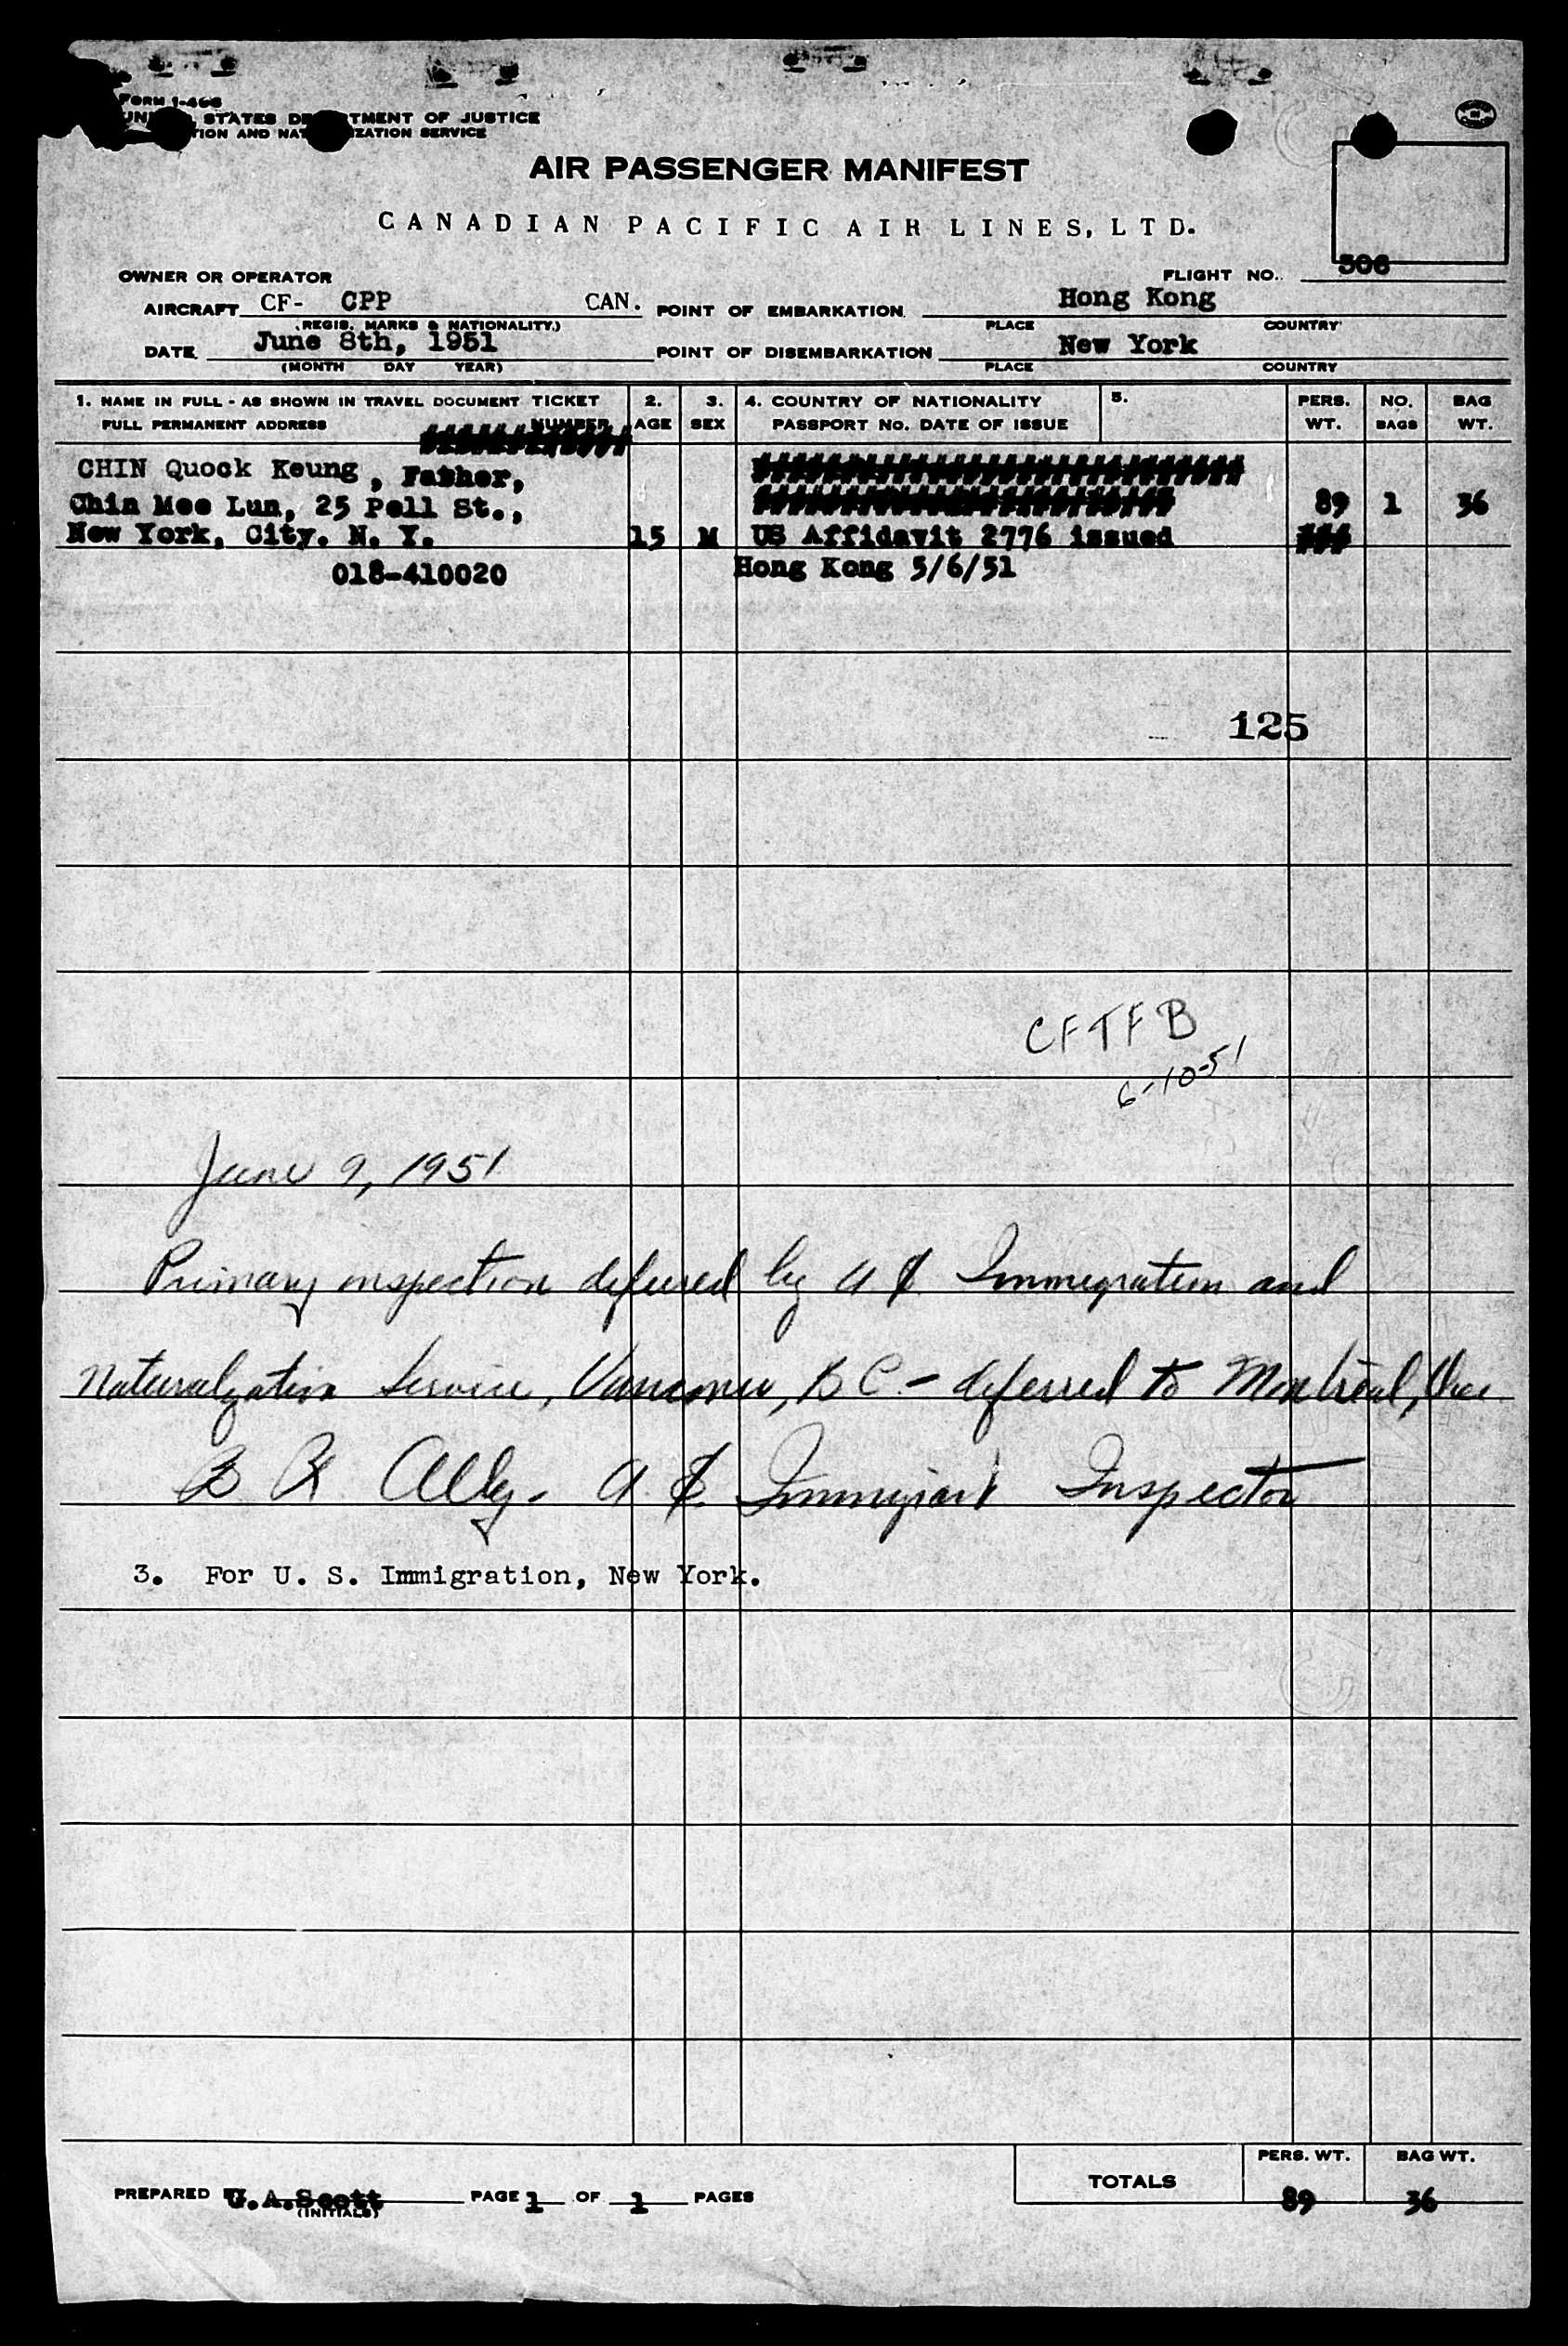 FORM I-466
STATES DE TMENT OF JUSTICE
TION AND NAT IZATION SERVICE
AIR PASSENGER MANIFEST
CANADIAN PACIFIC AIR LINES, LTD.
OWNER OR OPERATOR
FLIGHT NO. 506
AIRCRAFT CF- CPP CAN. POINT OF EMBARKATION Hong Kong
(REGIS. MARKS & NATIONALITY.) PLACE COUNTRY
DATE June 8th, 1951 POINT OF DISEMBARKATION New York
(MONTH DAY YEAR) PLACE COUNTRY
1. NAME IN FULL - AS SHOWN IN TRAVEL DOCUMENT TICKET 2. 3. 4. COUNTRY OF NATIONALITY 5. PERS. NO. BAG
FULL PERMANENT ADDRESS NUMBER AGE SEX PASSPORT No. DATE OF ISSUE WT. BAGS WT.
CHIN Quock Keung, Father,
Chin Mee Lun, 25 Pell St., 89 1 36
New York, City. N. Y. 15 M US Affidavit 2776 issued
018-410020 Hong Kong 5/6/51
125
CFTFB
6-10-51
June 9, 1951
Primary inspection deferred by U.S. Immigration and
Naturalization Service, Vancouver, B C. - deferred to Montreal,
U.S. Immigrant Inspector
3. For U. S. Immigration, New York.
PERS. WT. BAG WT.
TOTALS 89 36
PREPARED W.A.Scott PAGE 1 OF 1 PAGES
(INITIALS)